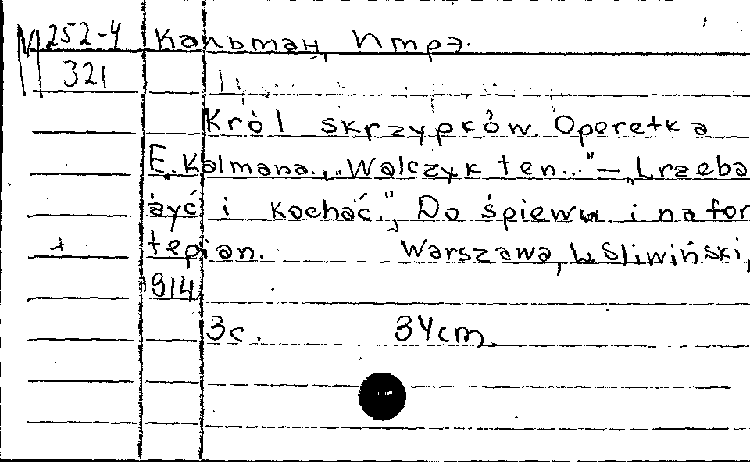 М 252-4 Кальман, Имрэ.
321
Król skrzypków. Operetka
E. Kalmana. „Walczyk ten..." – „Trzeba
żyć i kochać.", Do śpiewu i na for
tepian. Warszawa, L. Śliwiński,
1914
3c. 34cm.